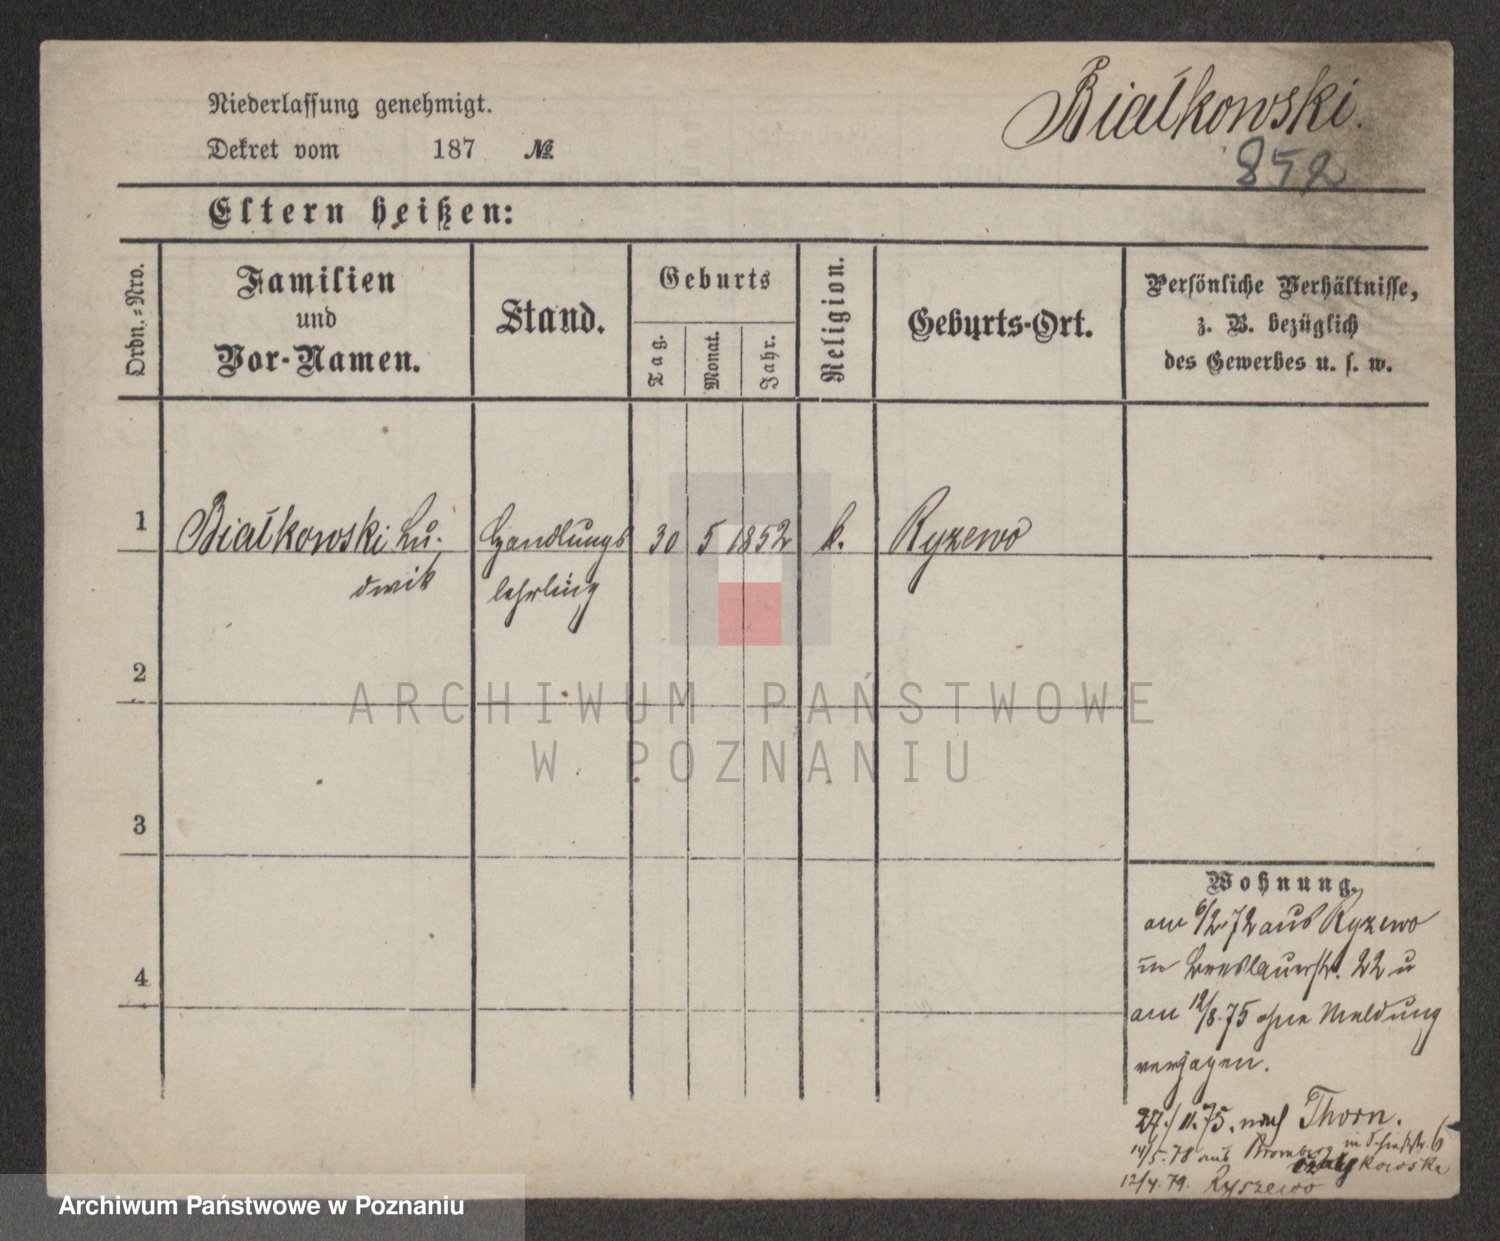 Niederlassung genehmigt.
Dekret vom 187 №
Białkowski.
852
Eltern heißen:
Ordn.-Nro.
Familien
und
Vor-Namen.
Stand.
Geburts
Tag.
Monat.
Jahr.
Religion.
Geburts-Ort.
Persönliche Verhältnisse,
z. B. bezüglich
des Gewerbes u. s. w.
1 Białkowski Lu- Handlungs 30 5 1852 k. Ryzewo
dwik lehrling
2
3
4
Wohnung.
am 6/2.72 aus Ryzewo
in Breslauerstr. 22 u
am 12/8.75 ohne Meldung
verzogen.
27./11.75. nach Thorn.
14/5.78 aus Bromberg in
12/4.79. Ryszewo
ARCHIWUM PAŃSTWOWE
W POZNANIU
Archiwum Państwowe w Poznaniu